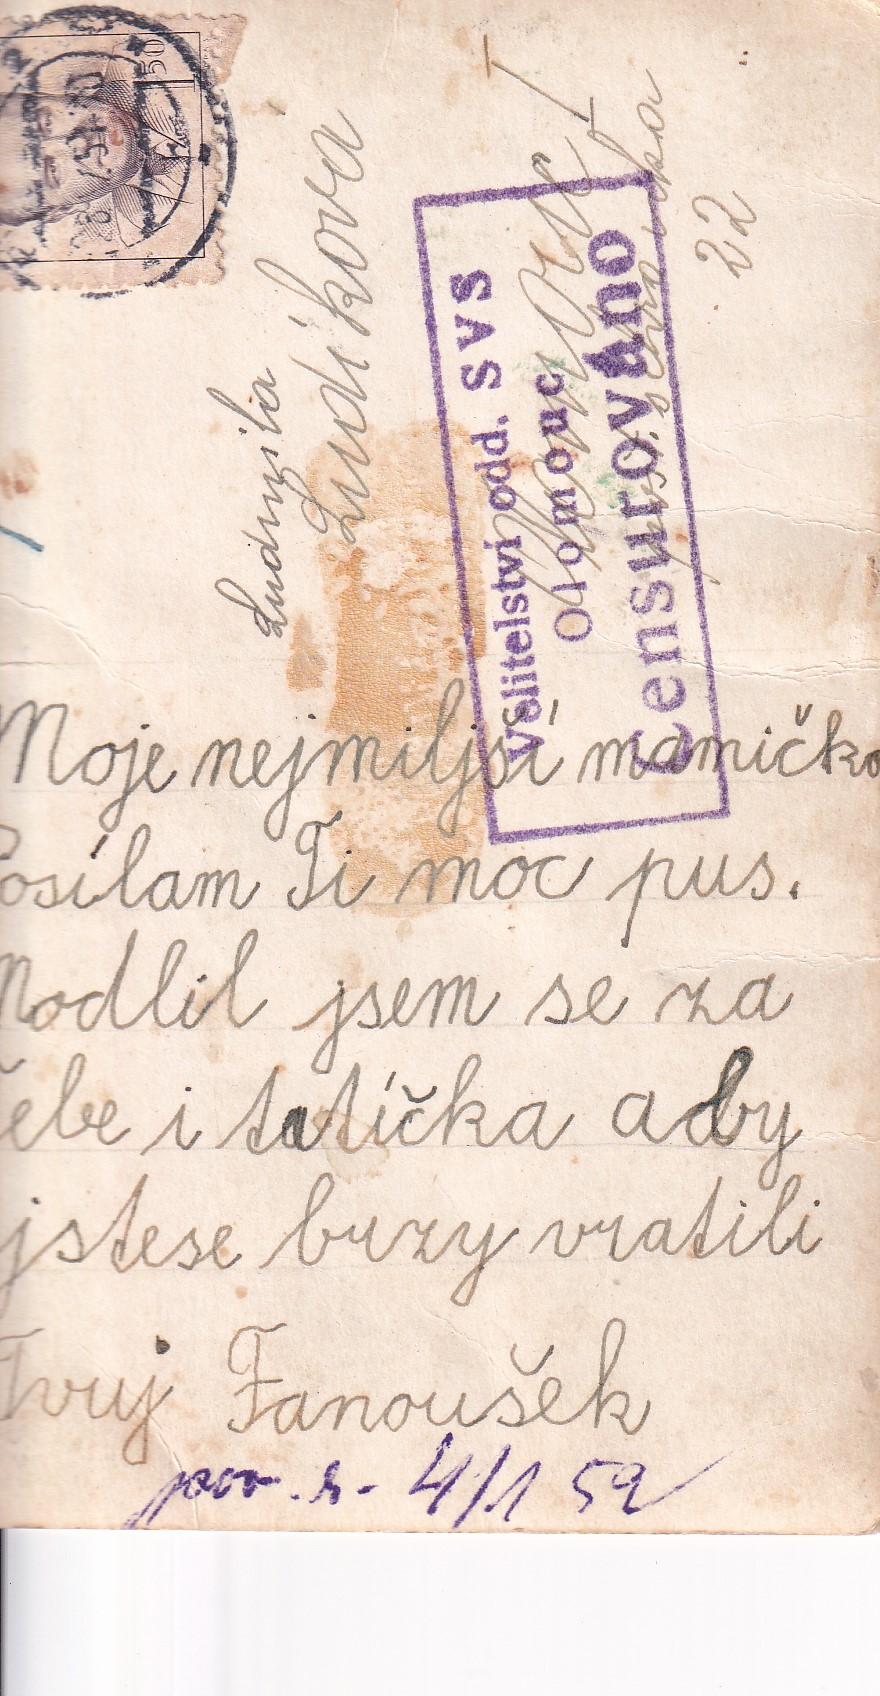 50
Ludmila
Ludikova
22
Velitelství odd. SVS
Olomouc
Censurováno
Moje nejmiljsí mamičko
Posílam Ti moc pus.
Modlil jsem se za
Tebe i tatíčka aby
jstese brzy vratili
Tvuj Fanoušek
4/1 52